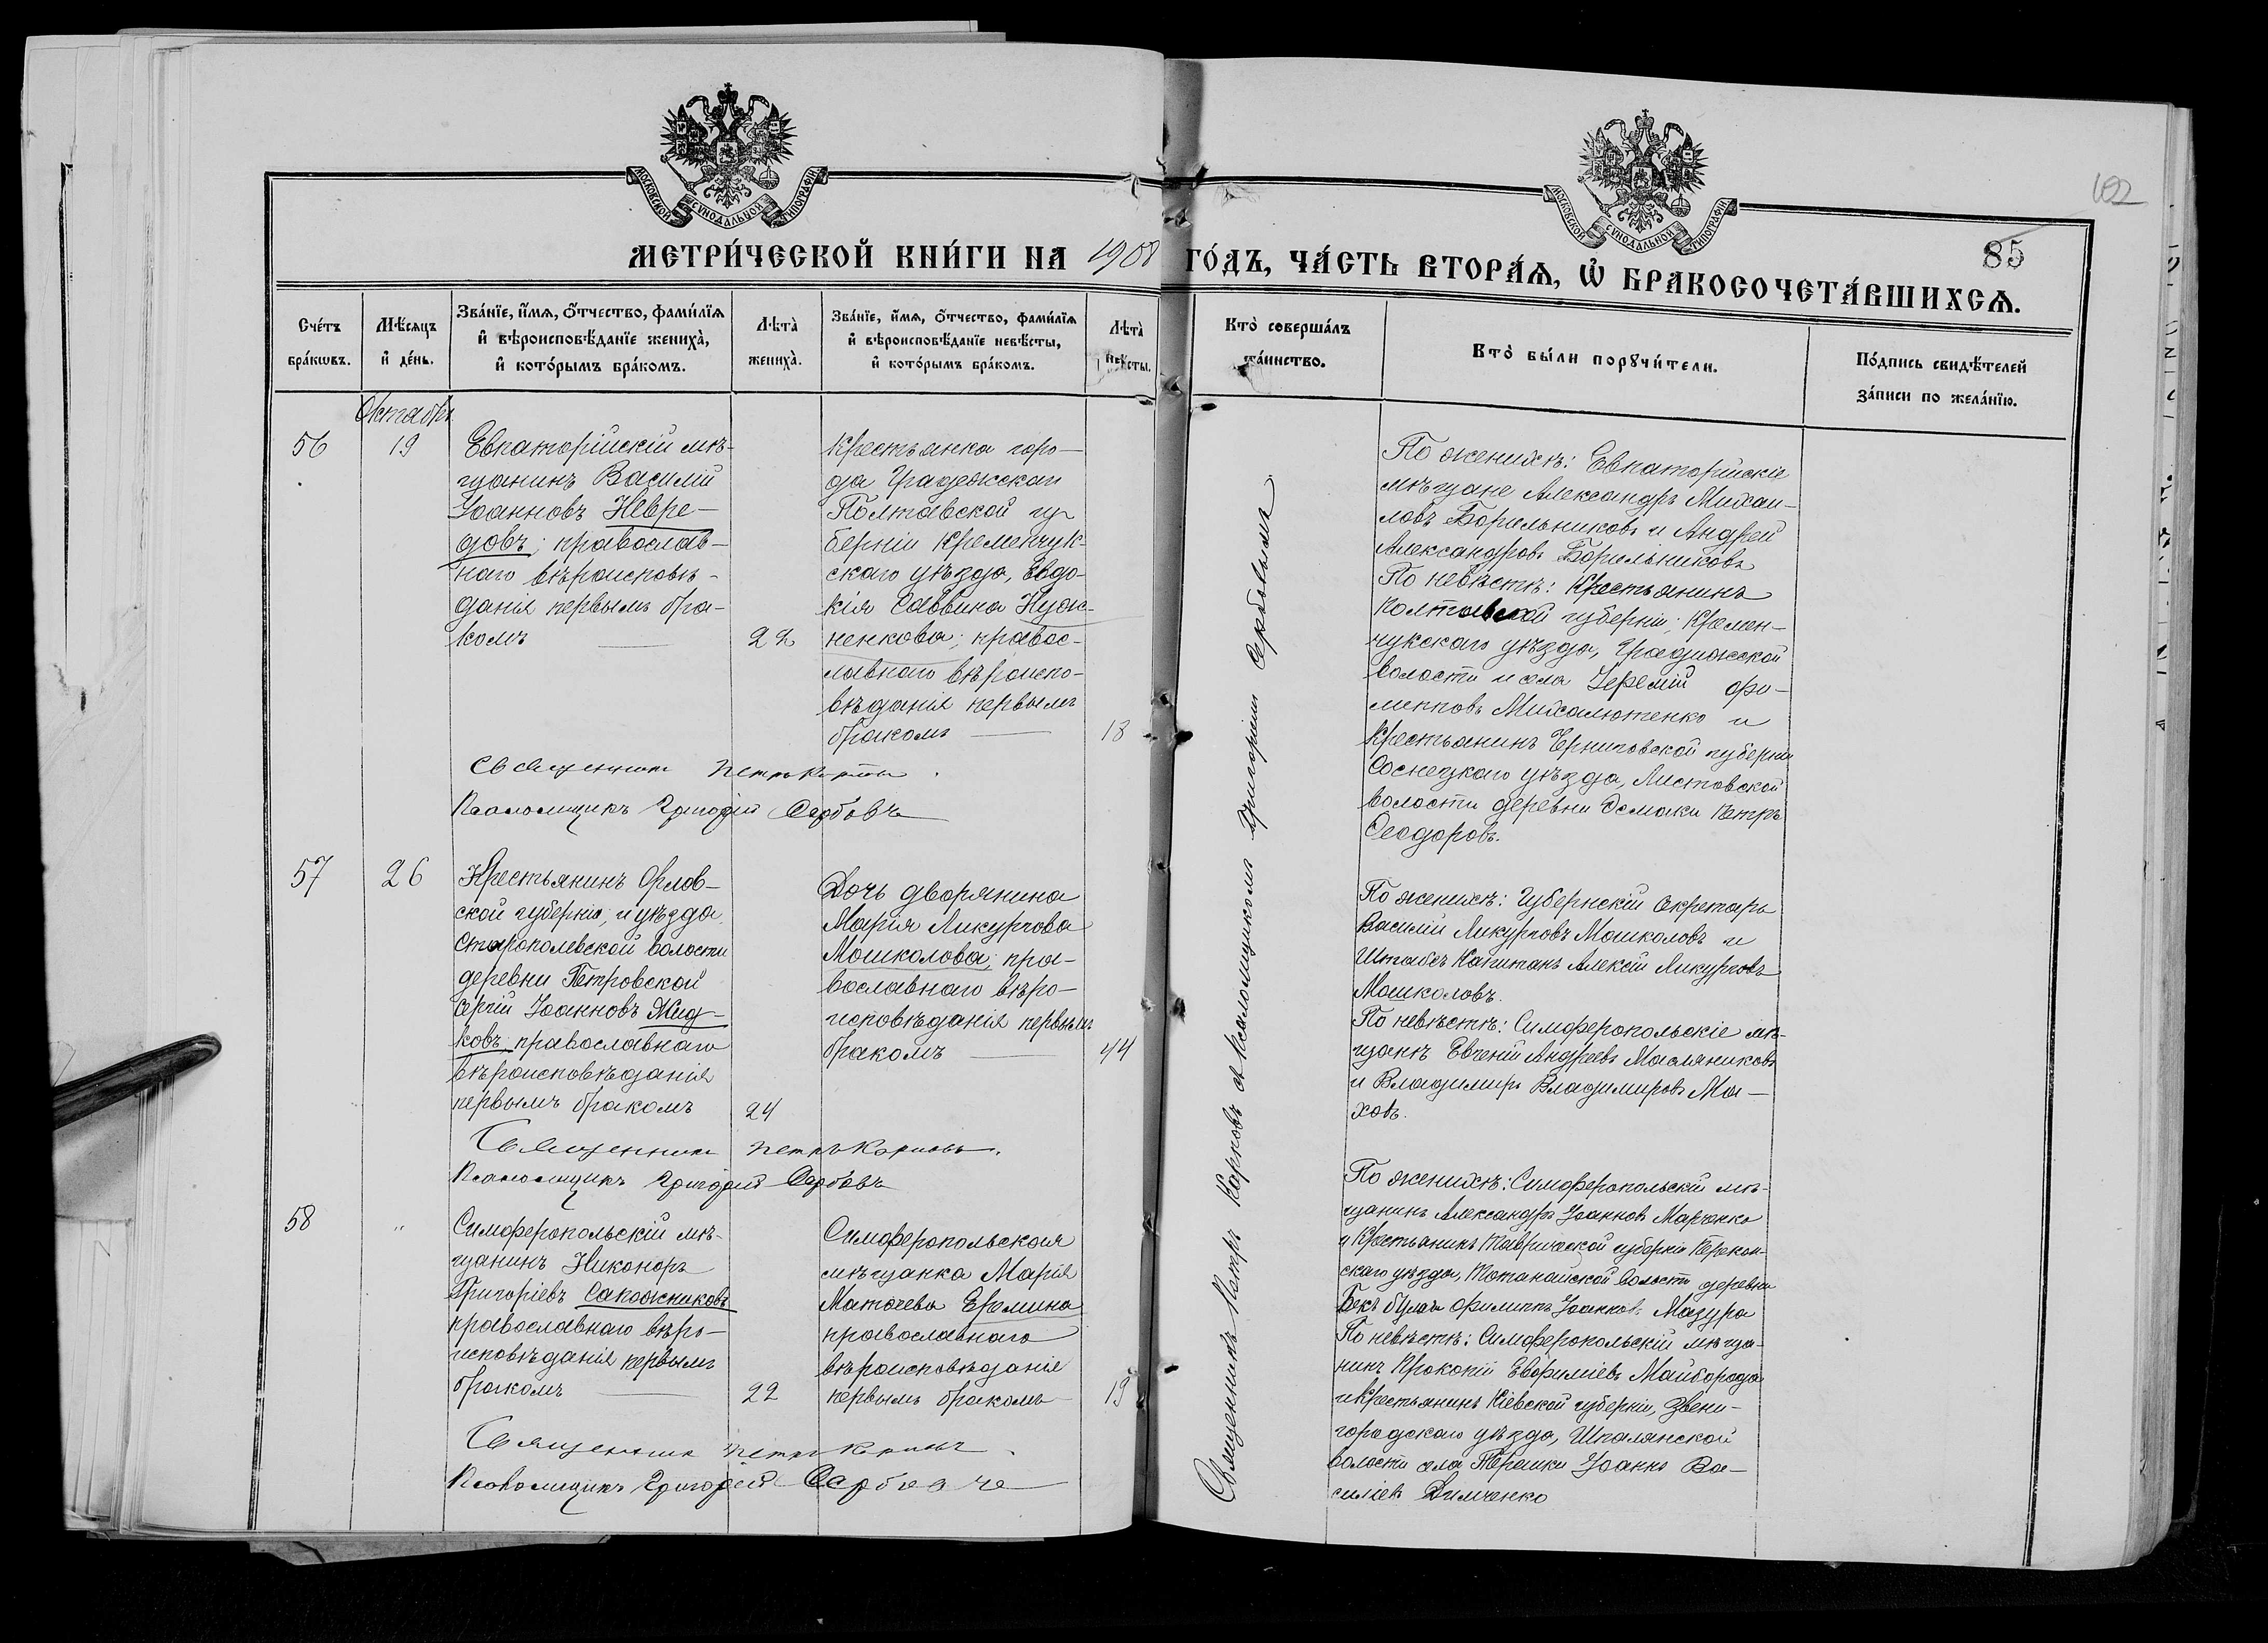 МОСКОВСКОЙ СѴНОДАЛЬНОЙ ТИПОГРАФІИ
МОСКОВСКОЙ СѴНОДАЛЬНОЙ ТИПОГРАФІИ
85
МЕТРИ́ЧЕСКОЙ КНИ́ГИ НА 1908 ГО́ДЪ, ЧА́СТЬ ВТОРА́Ѧ, Ѽ БРАКОСОЧЕТА́ВШИХСѦ.
Сче́тъ
бра́кѡвъ.
Мѣ́сѧцъ
и҆ де́нь.
Зва́нїе, и҆́мѧ, о҆́тчество, фами́лїѧ
и҆ вѣроисповѣ́данїе жениха̀,
и҆ кото́рымъ бра́комъ.
Лѣта̀
жениха̀.
Зва́нїе, и҆́мѧ, о҆́тчество, фами́лїѧ
и҆ вѣроисповѣ́данїе невѣ́сты,
и҆ кото́рымъ бра́комъ.
Лѣта̀
невѣ́сты.
Кто̀ соверша́лъ
та́инство.
Кто̀ бы́ли порꙋчи́тели.
По́дпись свидѣ́телей
за́писи по жела́нїю.
Октябрь
56
19
Евпаторійскій мѣ-
щанинъ Василій
Іоанновъ Невре-
довъ; православ-
наго вѣроисповѣ-
данія первымъ бра-
комъ
22
Крестьянка горо-
да Градижска
Полтавской гу
берніи Кременчук-
скаго уѣзда, Евдо-
кія Саввина Нуж-
ненкова; правос-
лавнаго вѣроиспо-
вѣданія первымъ
бракомъ
18
Священникъ Петръ Карповъ
Псаломщикъ Григорій Сербовъ
По женихѣ: Евпаторійскіе
мѣщане Александръ Михаи-
ловъ Борильниковъ и Андрей
Александровъ Борильниковъ
По невѣстѣ: Крестьянинъ
Полтавской губерніи, Кремен-
чукскаго уѣзда, Градижской
волости и села Іеремій Фи-
липповъ Михалютенко и
Крестьянинъ Черниговской губерніи
Сосницкаго уѣзда,
волости деревни Петръ
Ѳеодоровъ.
57
26
Крестьянинъ Орлов-
ской губерніи, и уѣзда
Старополевской волости
деревни Петровской
Сергій Іоанновъ Жид-
ковъ, православнаго
вѣроисповѣданія
первымъ бракомъ
24
Дочь дворянина
Марія Ликургова
Мошколова; пра-
вославнаго вѣро-
исповѣданія первымъ
бракомъ
44
Священникъ Петръ Карповъ.
Псаломщикъ Григорій Сербовъ
По женихѣ: Губернскій Секретарь
Василій Ликурговъ Мошколовъ и
Штабсъ Капитанъ Алексѣй Ликурговъ
Мошколовъ.
По невѣстѣ: Симферопольскіе мѣ-
щанѣ Евгеній Андреевъ Масляниковъ
и Владимиръ Владимировъ Ма-
ховъ.
58
"
Симферопольскій мѣ-
щанинъ Никоноръ
Григоріевъ Сапожниковъ
православнаго вѣро-
исповѣданія первымъ
бракомъ
22
Симферопольская
мѣщанка Марія
Матѳеева Еремина
православнаго
вѣроисповѣданія
первымъ бракомъ
19
Священникъ Петръ Карповъ
Псаломщикъ Григорій Сербовъ
По женихѣ: Симферопольскій мѣ-
щанинъ Александръ Іоанновъ Марченко
и Крестьянинъ Таврической губерніи Перекоп-
скаго уѣзда, Тотанайской волости деревни
Бекъ Булачи Филиппъ Іоанновъ Мазура
По невѣстѣ: Симферопольскій мѣща-
нинъ Прокопій Евфиміевъ Майборода
и Крестьянинъ Кіевской губерніи, Звени-
городскаго уѣзда, Шполянской
волости села Терешки Іоаннъ Ва-
силіевъ Димченко
Священникъ Петръ Карповъ съ псаломщикомъ Григоріемъ Сербовымъ